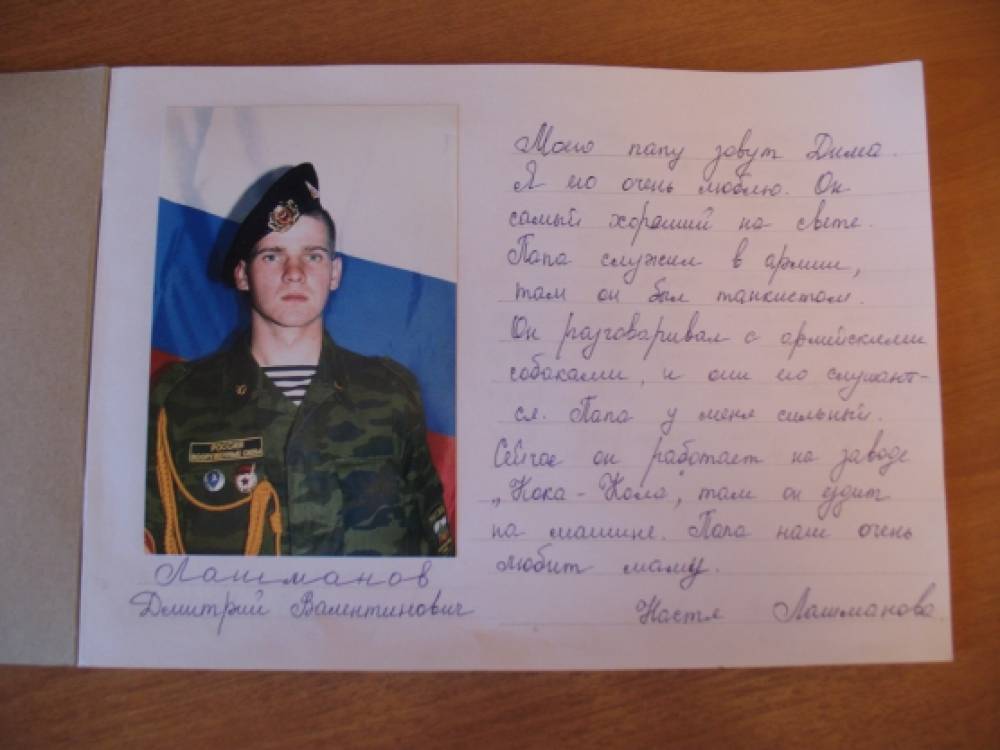 РОССИЯ
ВООРУЖЕННЫЕ СИЛЫ
Лашманов
Дмитрий Валентинович
Моего папу зовут Дима.
Я его очень люблю. Он
самый хороший на свете.
Папа служил в армии,
там он был танкистом.
Он разговаривал с армейскими
собаками, и они его слушают-
ся. Папа у меня сильный.
Сейчас он работает на заводе
„Кока-Кола", там он ездит
на машине. Папа наш очень
любит маму.
Настя Лашманова.